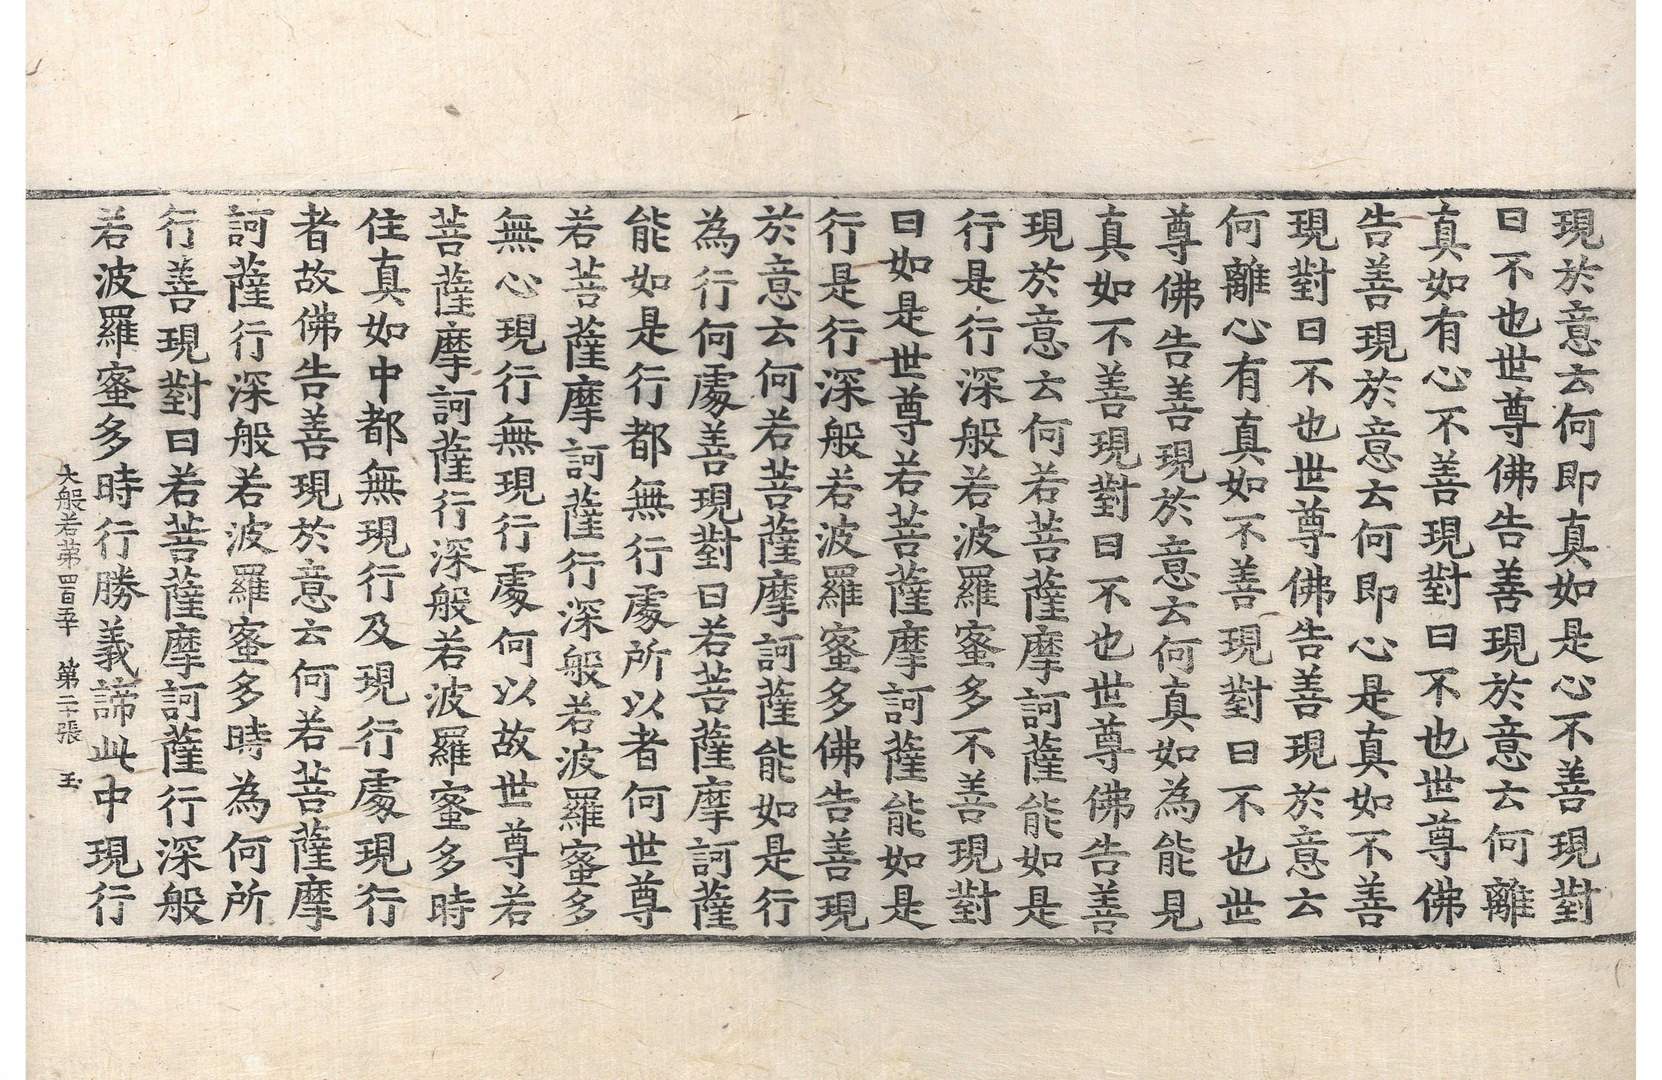 現於意云何即真如是心不善現對
曰不也世尊佛告善現於意云何離
真如有心不善現對曰不也世尊佛
告善現於意云何即心是真如不善
現對曰不也世尊佛告善現於意云
何離心有真如不善現對曰不也世
尊佛告善現於意云何真如為能見
真如不善現對曰不也世尊佛告善
現於意云何若菩薩摩訶薩能如是
行是行深般若波羅蜜多不善現對
曰如是世尊若菩薩摩訶薩能如是
行是行深般若波羅蜜多佛告善現
於意云何若菩薩摩訶薩能如是行
為行何處善現對曰若菩薩摩訶薩
能如是行都無行處所以者何世尊
若菩薩摩訶薩行深般若波羅蜜多
無心現行無現行處何以故世尊若
菩薩摩訶薩行深般若波羅蜜多時
住真如中都無現行及現行處現行
者故佛告善現於意云何若菩薩摩
訶薩行深般若波羅蜜多時為何所
行善現對曰若菩薩摩訶薩行深般
若波羅蜜多時行勝義諦此中現行
大般若第四百五十 第二十張 玉